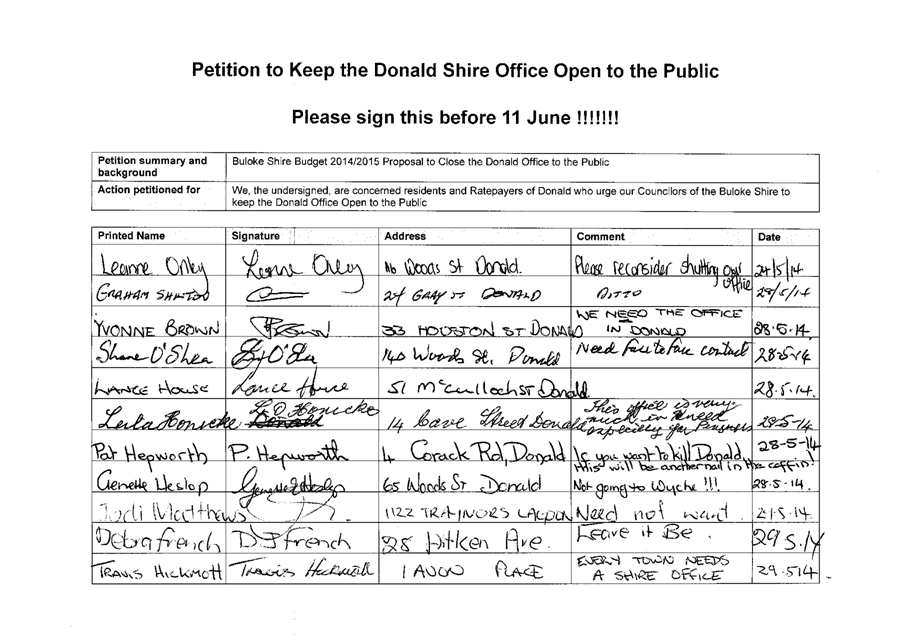 Petition to Keep the Donald Shire Office Open to the Public
Please sign this before 11 June !!!!!!!
Petition summary and background
Buloke Shire Budget 2014/2015 Proposal to Close the Donald Office to the Public
Action petitioned for
We, the undersigned, are concerned residents and Ratepayers of Donald who urge our Councilors of the Buloke Shire to
keep the Donald Office Open to the Public
Printed Name Signature Address Comment Date
Leanne Onley Leanne Onley Woods St Donald. Please reconsider shutting our office 24/5/14
GRAHAM 24 GRAY ST DONALD DITTO 29/5/14
YVONNE BROWN YBrown 33 HOUSTON ST DONALD WE NEED THE OFFICE IN DONALD 28.5.14
Shane O'Shea O'Shea 140 Woods St. Donald Need face to face contact 28-5-14
LANCE HOUSE Lance House 51 McCulloch St Donald 28.5.14.
Leila Honicke L D Honicke 14 Cave Street Donald This office is very much in need especially for Pensioners 28-5-14
Pat Hepworth P. Hepworth 4 Corack Rd, Donald If you want to kill Donald, this will be another nail in the coffin! 28-5-14
Genette Heslop Genette Heslop 65 Woods St Donald Not going to Wyche !!! 28.5.14.
Jodi Matthews 1122 TRAINORS LAGOON Need not want. 21.5.14.
Debra french D J french 28 Aitken Ave. Leave it Be. 29 5.14
TRAVIS HICKMOTT Travis Hickmott 1 AVON PLACE EVERY TOWN NEEDS A SHIRE OFFICE 29.5 14